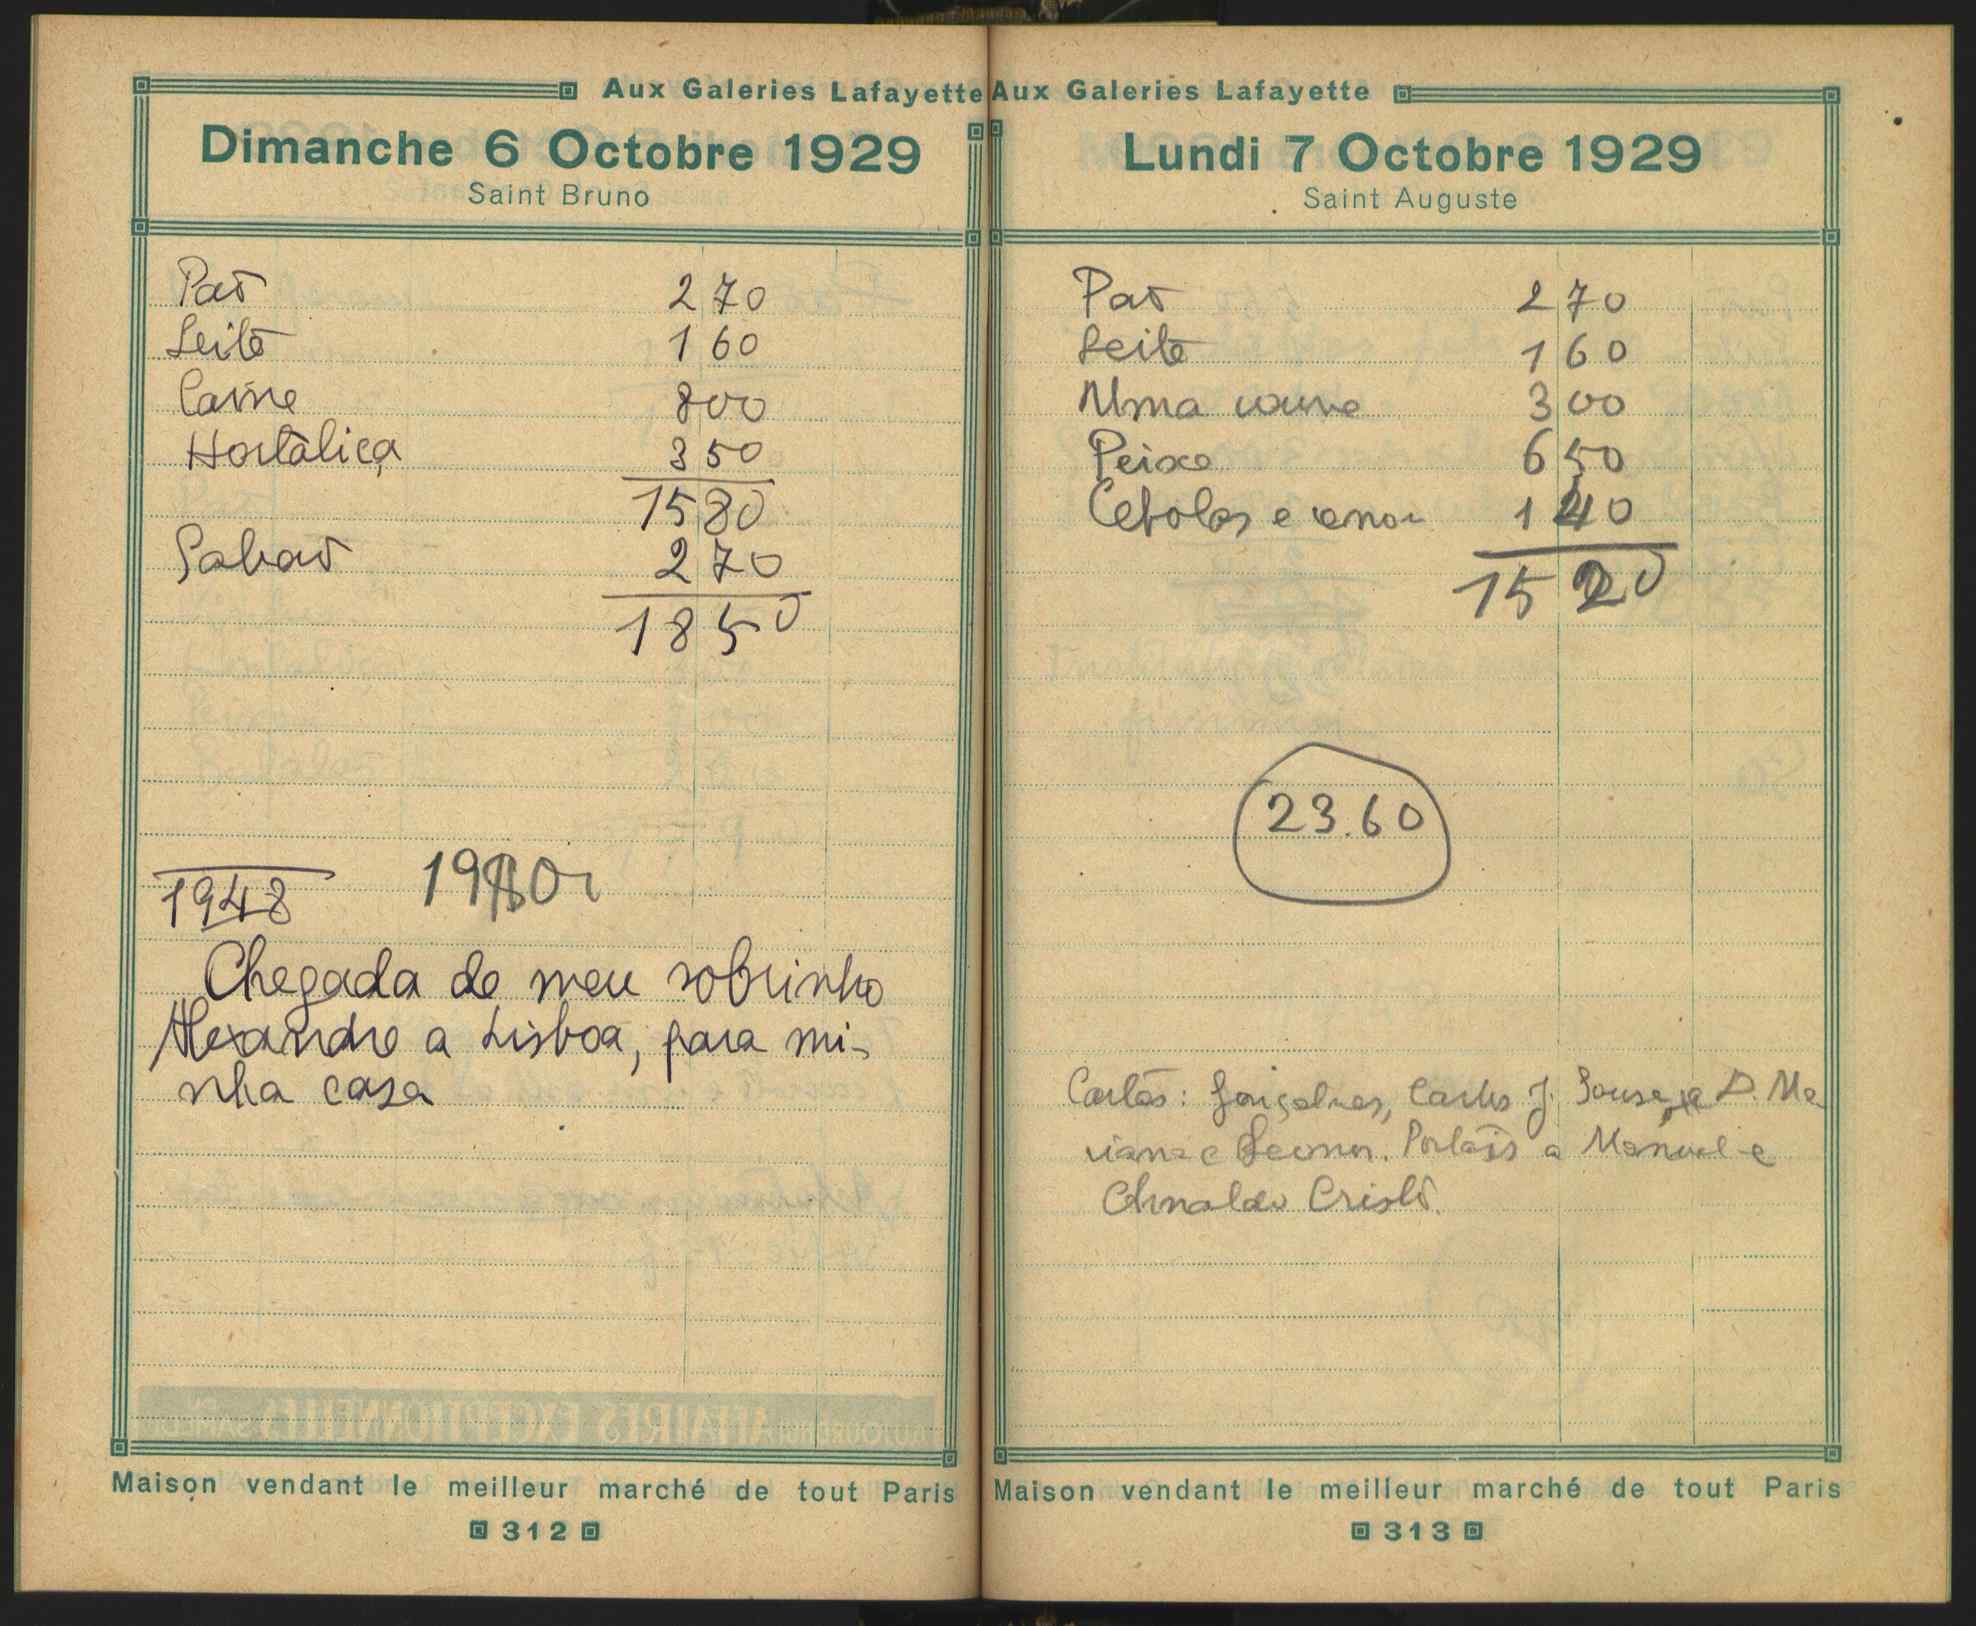 Aux Galeries Lafayette
Dimanche 6 Octobre 1929
Saint Bruno
Pão 2 70
Leite 1 60
Carne 8 00
Hortaliça 3 50
15 80
Sabão 2 70
18 50
1948
Chegada de meu sobrinho
Alexandre a Lisboa, para mi-
nha casa
Maison vendant le meilleur marché de tout Paris
312
Aux Galeries Lafayette
Lundi 7 Octobre 1929
Saint Auguste
Pão 2 70
Leite 1 60
Uma couve 3 00
Peixe 6 50
Cebolas e 1 40
15 20
23.60
Cartas: Gonçalves, Carlos J. Sousa, a D. Ma
riana e Leonor. Postais a Manuel e
Arnaldo Cristo.
Maison vendant le meilleur marché de tout Paris
313